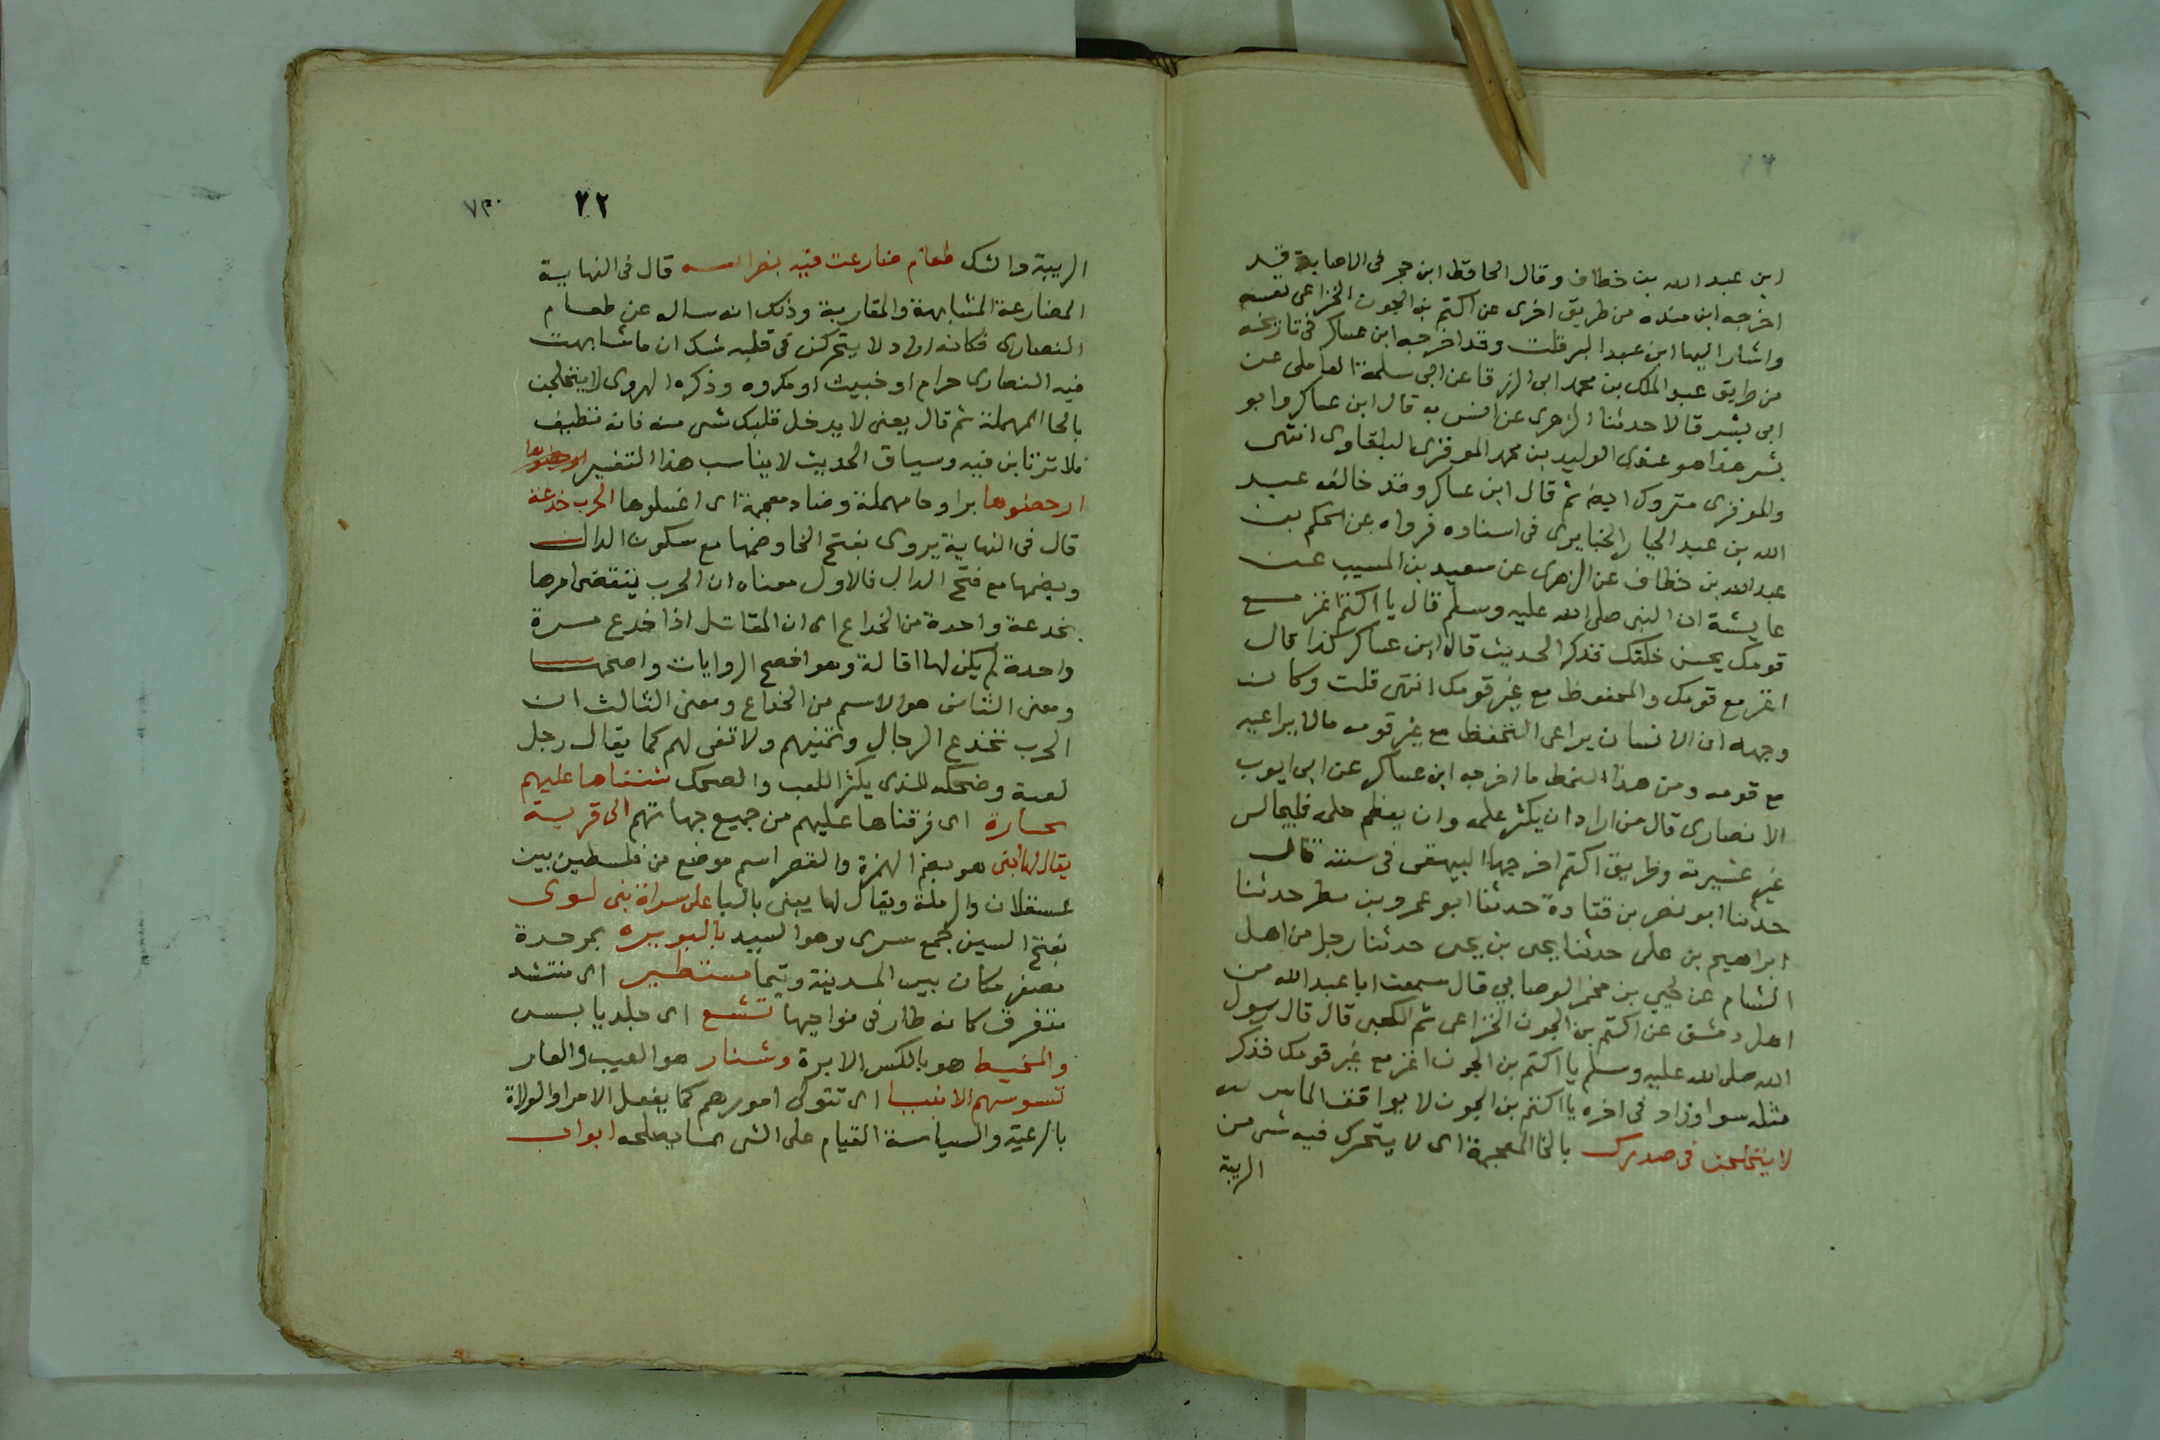 ابن عبد الله بن خطاف وقال الحافظ ابن حجر فى الاصابة قد
اخرجه ابن منده من طريق اخرى عن اكثم بن الجون الخزاعى نفسه
واشار اليها ابن عبد البر قلت وقد اخرجه ابن عساكر فى تاريخه
من طريق عبد الملك بن محمد ابى الزرقا عن ابى سلمة العاملى عن
ابى بشر قالا حدثنا الزهرى عن انس به قال ابن عساكر وابو
بشر هذا هو عندى الوليد بن محمد الموقرى البلقاوى انتهى
والموقرى متروك ايضا ثم قال ابن عساكر وقد خالفه عبد
الله بن عبد الجبار الخبايرى فى اسناده فرواه عن الحكم بن
عبد الله بن خطاف عن الزهرى عن سعيد بن المسيب عن
عايشة ان النبى صلى الله عليه وسلم قال يا اكثم اغز مع
قومك يحسن خلقك فذكر الحديث قال ابن عساكر كذا قال
اغز مع قومك والمحفوظ مع غير قومك انتهى قلت وكان
وجهه ان الانسان يراعى التحفظ مع غير قومه مالا يراعيه
مع قومه ومن هذا النمط ما اخرجه ابن عساكر عن ابى ايوب
الانصارى قال من اراد ان يكثر علمه وان يعظم حلمه فليجالس
غير عشيرته وطريق اكثم اخرجها البيهقى فى سننه قال
حدثنا ابو نصر بن قتادة حدثنا ابو عمرو بن مطر حدثنا
ابراهيم بن على حدثنا يحى بن يحى حدثنا رجل من اهل
الشام عن يحيي بن مخمر الوصابي قال سمعت ابا عبد الله من
اهل دمشق عن اكثم بن الجون الخزاعى ثم الكعبى قال قال رسول
الله صلى الله عليه وسلم يا اكثم بن الجون اغز مع غير قومك فذكر
مثله سوا وزاد فى اخره يا اكثم بن الجون لا يوافق الماس
لا يتخلجن فى صدرك بالخا المعجمة اى لا يتحرك فيه شى من
الريبة
٢٢
الريبة والشك طعام ضارعت فيه النصرانيه قال فى النهاية
المضارعة المشابهة والمقاربة وذلك انه ساله عن طعام
النصارى فكانه اراد لا يتحركن فى قلبه شك ان ما شابهت
فيه النصارى حرام او خبيث او مكروه وذكره الهروى لا يتحلجن
بالحا المهملة ثم قال يعنى لا يدخل قلبك شى منه فانه نظيف
فلا ترتابن فيه وسياق الحديث لا يناسب هذا التفسير
ارحضوها برا وحا مهملة وضاد معجمة اى اغسلوها الحرب خدعة
قال فى النهاية يروى بفتح الخا وضمها مع سكون الدال
وبضمها مع فتح الدال فالاول معناه ان الحرب ينقضى امرها
بخدعة واحدة من الخداع اى ان المقاتل اذا خدع مرة
واحدة لم يكن لها اقالة وهو افصح الروايات واصحها
ومعنى الثانى هو الاسم من الخداع ومعنى الثالث ان
الحرب تخدع الرجال وتمنيهم ولا تفى لهم كما يقال رجل
لعبة وضحكه للذى يكثر اللعب والضحك شنناها عليهم
حسارة اى فرقناها عليهم من جميع جهاتهم الى قرية
يقال لها ابنى هو بضم الهمزة والقصر اسم موضع من فلسطين بين
عسقلان والرملة ويقال لها يبنى باليا على سراة بنى لوى
بفتح السين جمع سرى وهو السيد بالبويره بموحدة
مصغر مكان بين المدينة وتيما مستطير اى منتشد
متفرق كانه طار فى نواحيها تشع اى جلد يابس
والمخيط هو بالكسر الابرة وشنار هو العيب والعار
تسوسهم الانبيا اى تتولى امورهم كما يفعل الامرا والولاة
بالرعية والسياسة القيام على الشى بما يصلحه ابواب